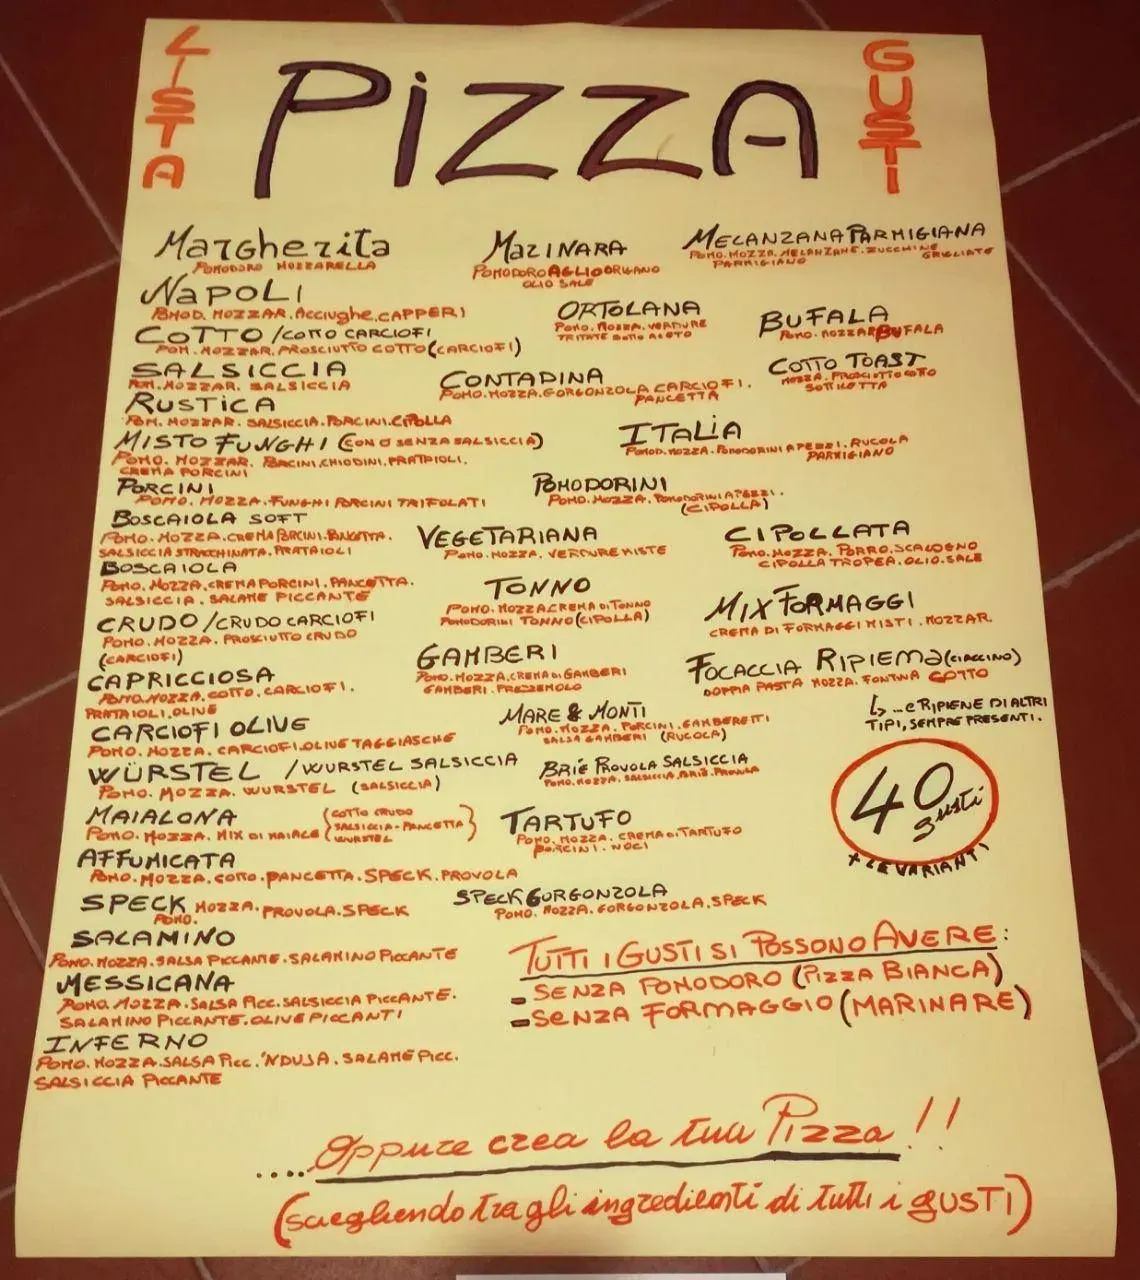 LISTA
PIZZA
GUSTI
Margherita
POMODORO MOZZARELLA
MARINARA
POMODORO AGLIO ORIGANO
OLIO SALE
MELANZANA PARMIGIANA
POMO. MOZZA. MELANZANE. ZUCCHINE GRIGLIATE
PARMIGIANO
NAPOLI
POMOD. MOZZAR. ACCIUGHE. CAPPERI
ORTOLANA
POMO. MOZZA. VERDURE
TRITATE SOTTO ACETO
BUFALA
POMO. MOZZAR BUFALA
COTTO / COTTO CARCIOFI
POM. MOZZAR. PROSCIUTTO COTTO (CARCIOFI)
SALSICCIA
POM. MOZZAR. SALSICCIA
CONTADINA
POMO. MOZZA. GORGONZOLA. CARCIOFI.
PANCETTA
COTTO TOAST
MOZZA. PROSCIUTTO COTTO
SOTTILETTA
RUSTICA
POM. MOZZAR. SALSICCIA. PORCINI. CIPOLLA
MISTO FUNGHI (CON O SENZA SALSICCIA)
POMO. MOZZAR. PORCINI. CHIODINI. PRATAIOLI.
CREMA PORCINI
ITALIA
POMOD. MOZZA. POMODORINI A PEZZI. RUCOLA
PARMIGIANO
PORCINI
POMO. MOZZA. FUNGHI PORCINI TRIFOLATI
POMODORINI
POMO. MOZZA. POMODORINI A PEZZI.
(CIPOLLA)
BOSCAIOLA SOFT
POMO. MOZZA. CREMA PORCINI. PANCETTA.
SALSICCIA STRACCHINATA. PRATAIOLI
VEGETARIANA
POMO. MOZZA. VERDURE MISTE
CIPOLLATA
POMO. MOZZA. PORRO. SCALOGNO
CIPOLLA TROPEA. OLIO. SALE
BOSCAIOLA
POMO. MOZZA. CREMA PORCINI. PANCETTA.
SALSICCIA. SALAME PICCANTE
TONNO
POMO. MOZZA CREMA DI TONNO
POMODORINI TONNO (CIPOLLA)
MIX FORMAGGI
CREMA DI FORMAGGI MISTI. MOZZAR.
CRUDO / CRUDO CARCIOFI
POMO. MOZZA. PROSCIUTTO CRUDO
(CARCIOFI)
GAMBERI
POMO. MOZZA. CREMA DI GAMBERI
GAMBERI. PREZZEMOLO
FOCACCIA RIPIENA (CIACCINO)
DOPPIA PASTA MOZZA. FONTINA COTTO
↳ ...E RIPIENE DI ALTRI
TIPI, SEMPRE PRESENTI.
CAPRICCIOSA
POMO. MOZZA. COTTO. CARCIOFI.
PRATAIOLI. OLIVE
CARCIOFI OLIVE
POMO. MOZZA. CARCIOFI. OLIVE TAGGIASCHE
MARE & MONTI
POMO. MOZZA. PORCINI. GAMBERETTI
SALSA GAMBERI (RUCOLA)
WÜRSTEL / WURSTEL SALSICCIA
POMO. MOZZA. WURSTEL (SALSICCIA)
BRIE PROVOLA SALSICCIA
POMO. MOZZA. SALSICCIA. BRIE. PROVOLA
40
gusti
+ LE VARIANTI
MAIALONA
POMO. MOZZA. MIX DI MAIALE (COTTO CRUDO
SALSICCIA - PANCETTA
WURSTEL)
TARTUFO
POMO. MOZZA. CREMA DI TARTUFO
PORCINI. NOCI
AFFUMICATA
POMO. MOZZA. COTTO. PANCETTA. SPECK. PROVOLA
SPECK MOZZA. PROVOLA. SPECK
POMO.
SPECK GORGONZOLA
POMO. MOZZA. GORGONZOLA. SPECK
SALAMINO
POMO. MOZZA. SALSA PICCANTE. SALAMINO PICCANTE
MESSICANA
POMO. MOZZA. SALSA PICC. SALSICCIA PICCANTE.
SALAMINO PICCANTE. OLIVE PICCANTI
INFERNO
POMO. MOZZA. SALSA PICC. 'NDUJA. SALAME PICC.
SALSICCIA PICCANTE
TUTTI I GUSTI SI POSSONO AVERE:
- SENZA POMODORO (PIZZA BIANCA)
- SENZA FORMAGGIO (MARINARE)
.... Oppure crea la tua Pizza!!
(scegliendo tra gli ingredienti di tutti i gUSTI)